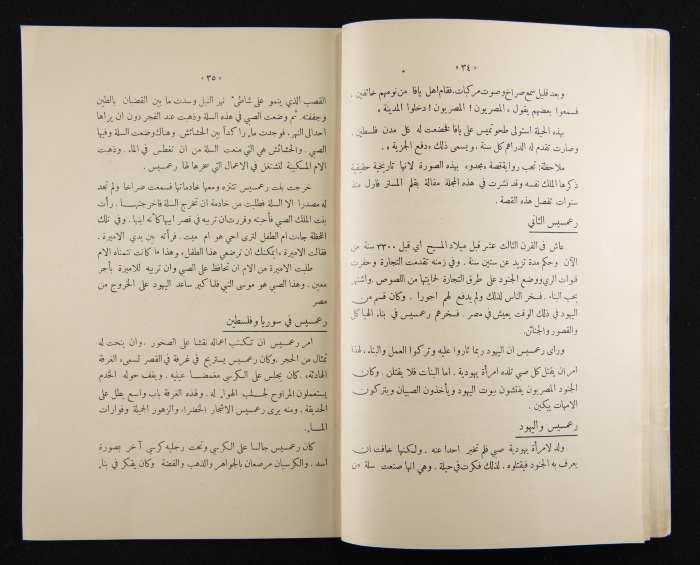 «٣٤»
وبعد قليل سمع صراخ وصوت مركبات، فقام اهل يافا من نومهم خائفين.
فسمعوا بعضهم يقول «المصريون! المصريون! دخلوا المدينة».
بهذه الحيلة استولى طحوتميس على يافا فخضعت له كل مدن فلسطين.
وصارت تقدم له الدراهم كل سنة، ويسمى ذلك «دفع الجزية».
ملاحظة: تجب رواية قصة «مجدو» بهذه الصورة لانها تاريخية حقيقية
ذكرها الملك نفسه وقد نشرت في هذه المجلة مقالة بقلم المستر فارل منذ
سنوات تفصل هذه القصة.
رعمسيس الثاني
عاش في القرن الثالث عشر قبل ميلاد المسيح اي قبل ٣٣٠٠ سنة من
الآن. وحكم مدة تزيد عن ستين سنة. وفي زمنه تقدمت التجارة وحفرت
قنوات الري ووضع الجنود على طرق التجارة لحمايتها من اللصوص. واشتهر
بحب البناء. فسخر الناس لذلك ولم يدفع لهم اجورا. وكان قسم من
اليهود في ذلك الوقت يعيش في مصر. فسخرهم رعمسيس في بناء الهياكل
والقصور والجنائن.
ورأى رعمسيس ان اليهود ربما ثاروا عليه وتركوا العمل والبناء، لهذا
امر ان يقتل كل صبي تلده امرأة يهودية. اما البنات فلا يقتلن. وكان
الجنود المصريون يفتشون بيوت اليهود ويأخذون الصبيان ويتركون
الامهات يبكين.
رعمسيس واليهود
ولد لامرأة يهودية صبي فلم تخبر احدا عنه. ولكنها خافت ان
يعرف به الجنود فيقتلوه. لذلك فكرت في حيلة. وهي انها صنعت سلة من
«٣٥»
القصب الذي ينمو على شاطئ نهر النيل وسدت ما بين القضبان بالطين
وجففته. ثم وضعت الصبي في هذه السلة وذهبت عند الفجر دون ان يراها
احد الى النهر، فوجدت ماء راكداً بين الحشائش. وهناك وضعت السلة وفيها
الصبي. والحشائش هي التي منعت السلة من ان تغطس في الماء. وذهبت
الام المسكينة لتشتغل في الاعمال التي سخرها لها رعمسيس.
خرجت بنت رعمسيس تتنزه ومعها خادماتها فسمعت صراخا ولم تجد
له مصدرا الا السلة فطلبت من خادمة ان تخرج السلة فاخرجتها. رأت
بنت الملك الصبي فأحبته وقررت ان تربيه في قصر ابيها كأنه ابنها. وفي تلك
اللحظة جاءت ام الطفل لترى احي هو ام ميت. فرأته بين يدي الاميرة.
فقالت الاميرة، ايمكنك ان ترضعي هذا الطفل، وهذا ما كانت تتمناه الام
طلبت الاميرة من الام ان تحافظ على الصبي وان تربيه للاميرة بأجر
معين. وهذا الصبي هو موسى النبي فلما كبر ساعد اليهود على الخروج من
مصر
رعمسيس في سوريا وفلسطين
امر رعمسيس ان تكتب اعماله نقشا على الصخور. وان ينحت له
تمثال من الحجر. وكان رعمسيس يستريح في غرفة في القصر تسمى «الغرفة
الهادئة». كان يجلس على الكرسي مغمضا عينيه. ويقف حوله الخدم
يستعملون المراوح لجلب الهواء له. ولهذه الغرفة باب واسع يطل على
الحديقة. ومنه يرى رعمسيس الاشجار الخضراء، والزهور الجميلة وفوارات
الماء.
كان رعمسيس جالسا على الكرسي وتحت رجليه كرسي آخر بصورة
اسد. والكرسيان مرصعان بالجواهر والذهب والفضة وكان يفكر في بناء